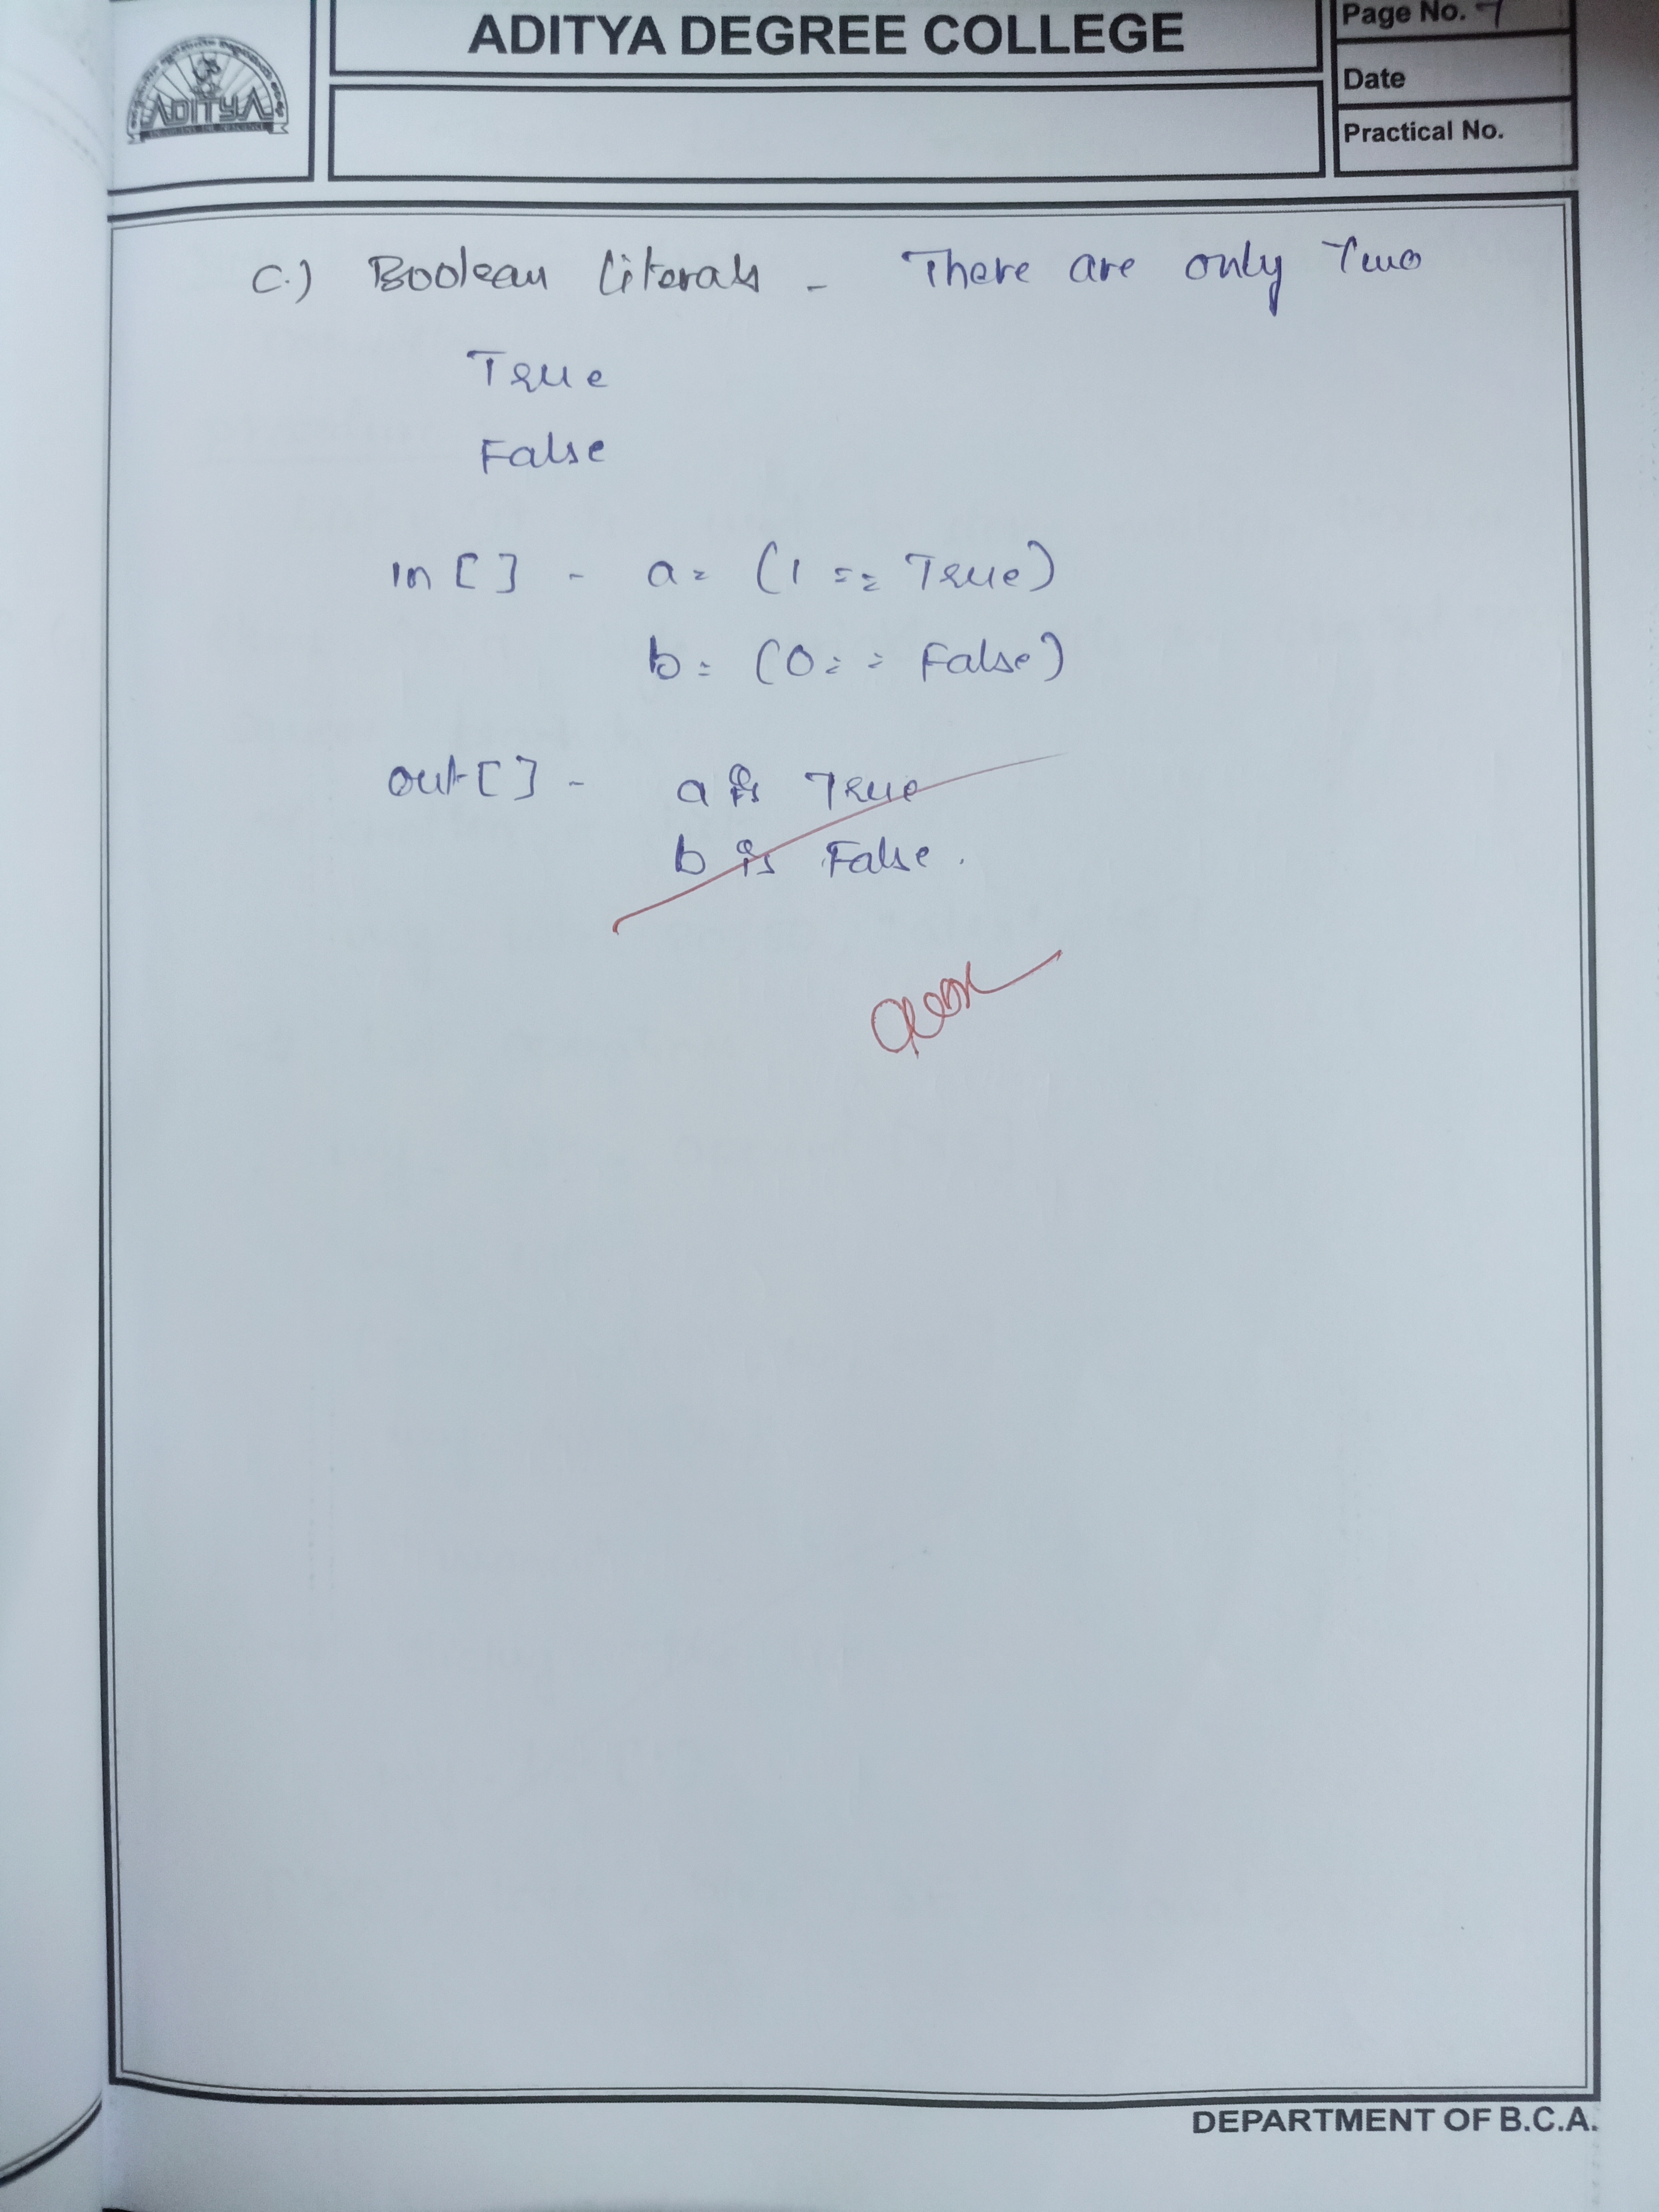 ADITYA DEGREE COLLEGE
Page No. 7
Date
Practical No.
ADITYA
C.) Boolean literals - There are only Two
True
False
in [ ] - a = (1 == True)
b = (0 == False)
out [ ] - a is True
b is False.
DEPARTMENT OF B.C.A.